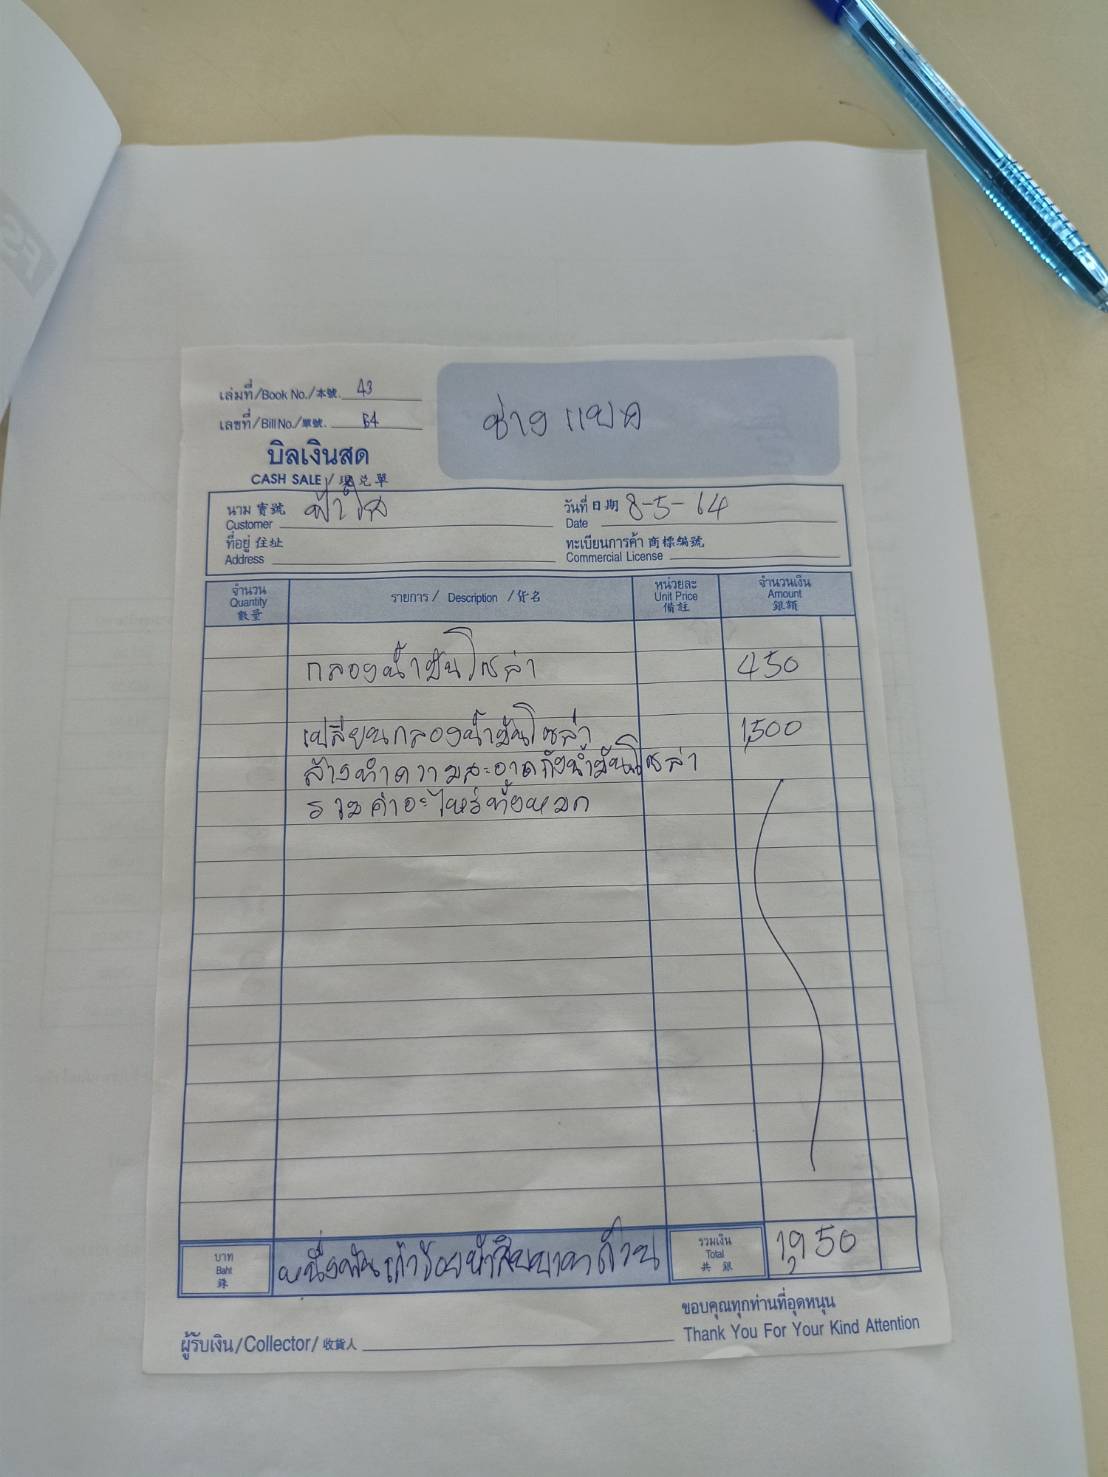 เล่มที่/Book No./本號. 43
เลขที่/Bill No./單號. 64
บิลเงินสด
CASH SALE / 現兑單
ช่าง แบด
นาม 寶號 ฟ้าใส
Customer
วันที่ 日期 8-5-64
Date
ที่อยู่ 住址
Address
ทะเบียนการค้า 商標編號
Commercial License
จำนวน
Quantity
數量
รายการ / Description / 貨名
หน่วยละ
Unit Price
備註
จำนวนเงิน
Amount
銀額
กลองน้ำมันโซล่า 450
เปลี่ยนกลองน้ำมันโซล่า 1,500
ล้างทำความสะอาดถังน้ำมันโซล่า
รวมค่าอะไหร่ทั้งหมด
บาท
Baht
銖
หนึ่งพันเก้าร้อยห้าสิบบาทถ้วน
รวมเงิน
Total
共銀
1,950
ขอบคุณทุกท่านที่อุดหนุน
Thank You For Your Kind Attention
ผู้รับเงิน/Collector/收貨人